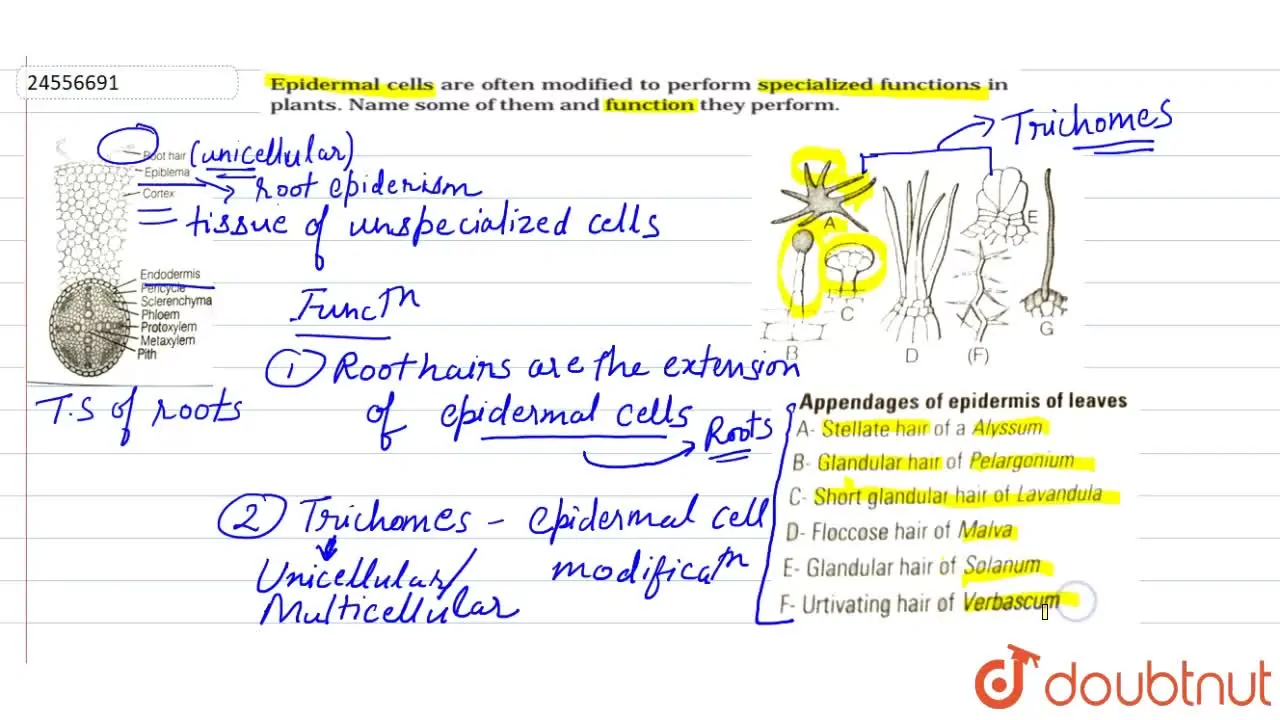 24556691
Epidermal cells are often modified to perform specialized functions in
plants. Name some of them and function they perform.
Root hair (unicellular)
Epiblema → root epiderism
Cortex
= tissue of unspecialized cells
Endodermis
Pericycle
Sclerenchyma
Phloem
Protoxylem
Metaxylem
Pith
T.S of roots
Funcᵗⁿ
① Root hairs are the extension
of epidermal cells
Roots
② Trichomes - epidermal cell
modificaᵗⁿ
Unicellular/
Multicellular
Trichomes
A
B
C
D
E
(F)
G
Appendages of epidermis of leaves
A- Stellate hair of a Alyssum
B- Glandular hair of Pelargonium
C- Short glandular hair of Lavandula
D- Floccose hair of Malva
E- Glandular hair of Solanum
F- Urtivating hair of Verbascum
doubtnut